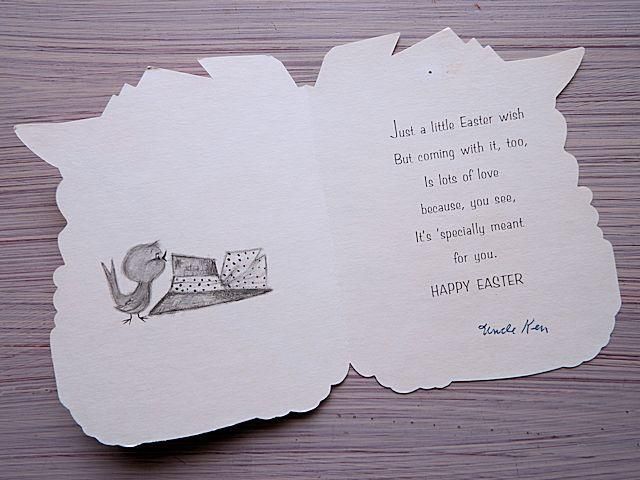 Just a little Easter wish
But coming with it, too,
Is lots of love
because, you see,
It's 'specially meant
for you.
HAPPY EASTER
Uncle Ken